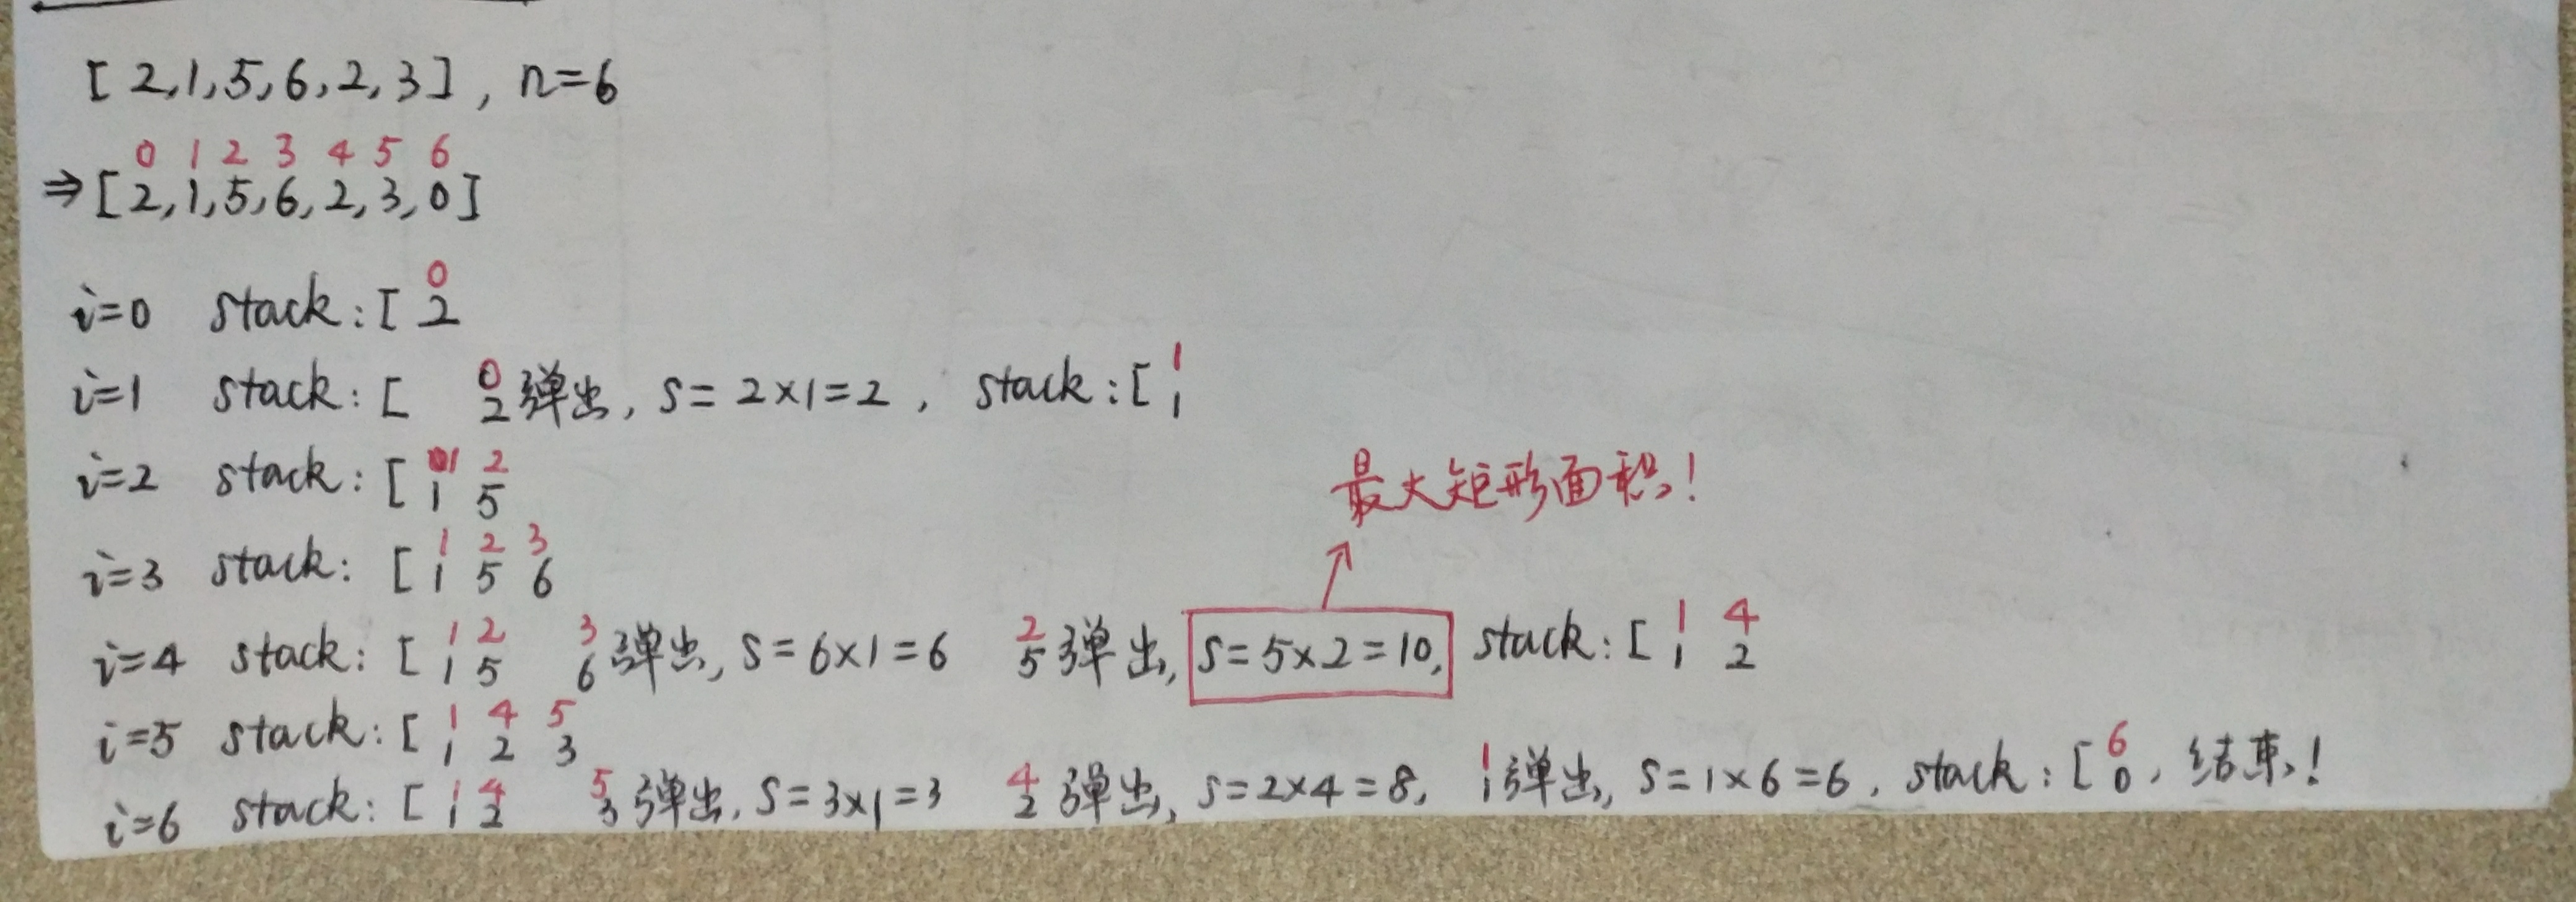 [ 2,1,5,6,2,3 ] , n=6
0 1 2 3 4 5 6
⇒[ 2,1,5,6,2,3,0 ]
0
i=0 stack:[ 2
0 1
i=1 stack:[ 2弹出, S= 2×1=2 , stack:[ 1
1 2
i=2 stack:[ 1 5
最大矩形面积!
1 2 3
i=3 stack: [ 1 5 6
1 2 3 2 1 4
i=4 stack: [ 1 5 6弹出, S=6×1=6 5弹出, S=5×2=10, stack:[ 1 2
1 4 5
i=5 stack:[ 1 2 3
1 4 5 4 1 6
i=6 stack:[ 1 2 3弹出, S=3×1=3 2弹出, S=2×4=8, 1弹出, S=1×6=6, stack:[ 0, 结束!